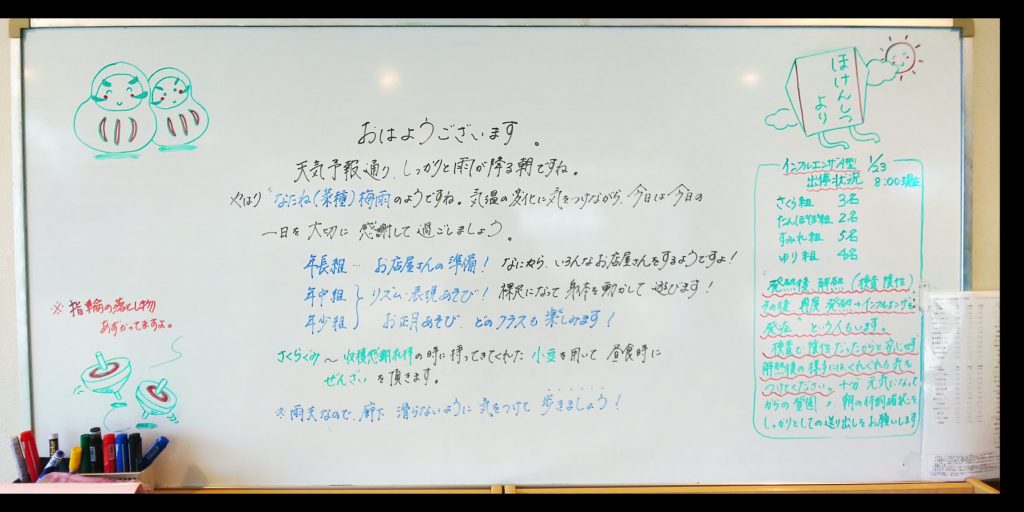 おはようございます。
天気予報通り、しっかりと雨が降る朝ですね。
やはり"なたね(菜種)梅雨のようですね。気温の変化に気をつけながら、今日は今日の
一日を大切に感謝して過ごしましょう。
年長組… お店屋さんの準備! なにやら、いろんなお店屋さんをするようですよ!
年中組 リズム、表現あそび! 裸足になって身体を動かして遊びます!
年少組 お正月あそび、どのクラスも楽しみます!
さくらぐみ〜収穫感謝礼拝の時に持ってきてくれた小豆を用いて昼食時に
ぜんざいを頂きます。
※雨天なので、廊下 滑らないように気をつけて 歩きましょう!
※指輪の落とし物
あずかってますよ。
ほけんしつ
より
インフルエンザA型 1/23
出停状況 8:00現在
さくら組 3名
たんぽぽ組 2名
すみれ組 5名
ゆり組 4名
"発熱後、解熱(検査陰性)
その後 再度 発熱→インフルエンザを
発症"という人もいます。
検査も陰性だったからと安心せず
解熱後の様子にはくれぐれも気を
つけてください。十分元気になって
からの登園 朝の体調確認を
しっかりとしての送り出しをお願いします